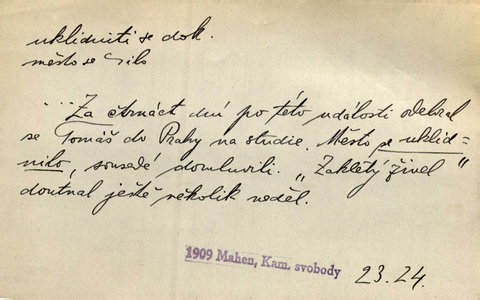 uklidniti se dok.
město se ~ilo
... Za čtrnáct dní po této události odebral
se Tomáš do Prahy na studie. Město se uklid=
nilo, sousedé domluvili. „Zakletý živel"
doutnal ještě několik neděl.
1909 Mahen, Kam. svobody
23.24.